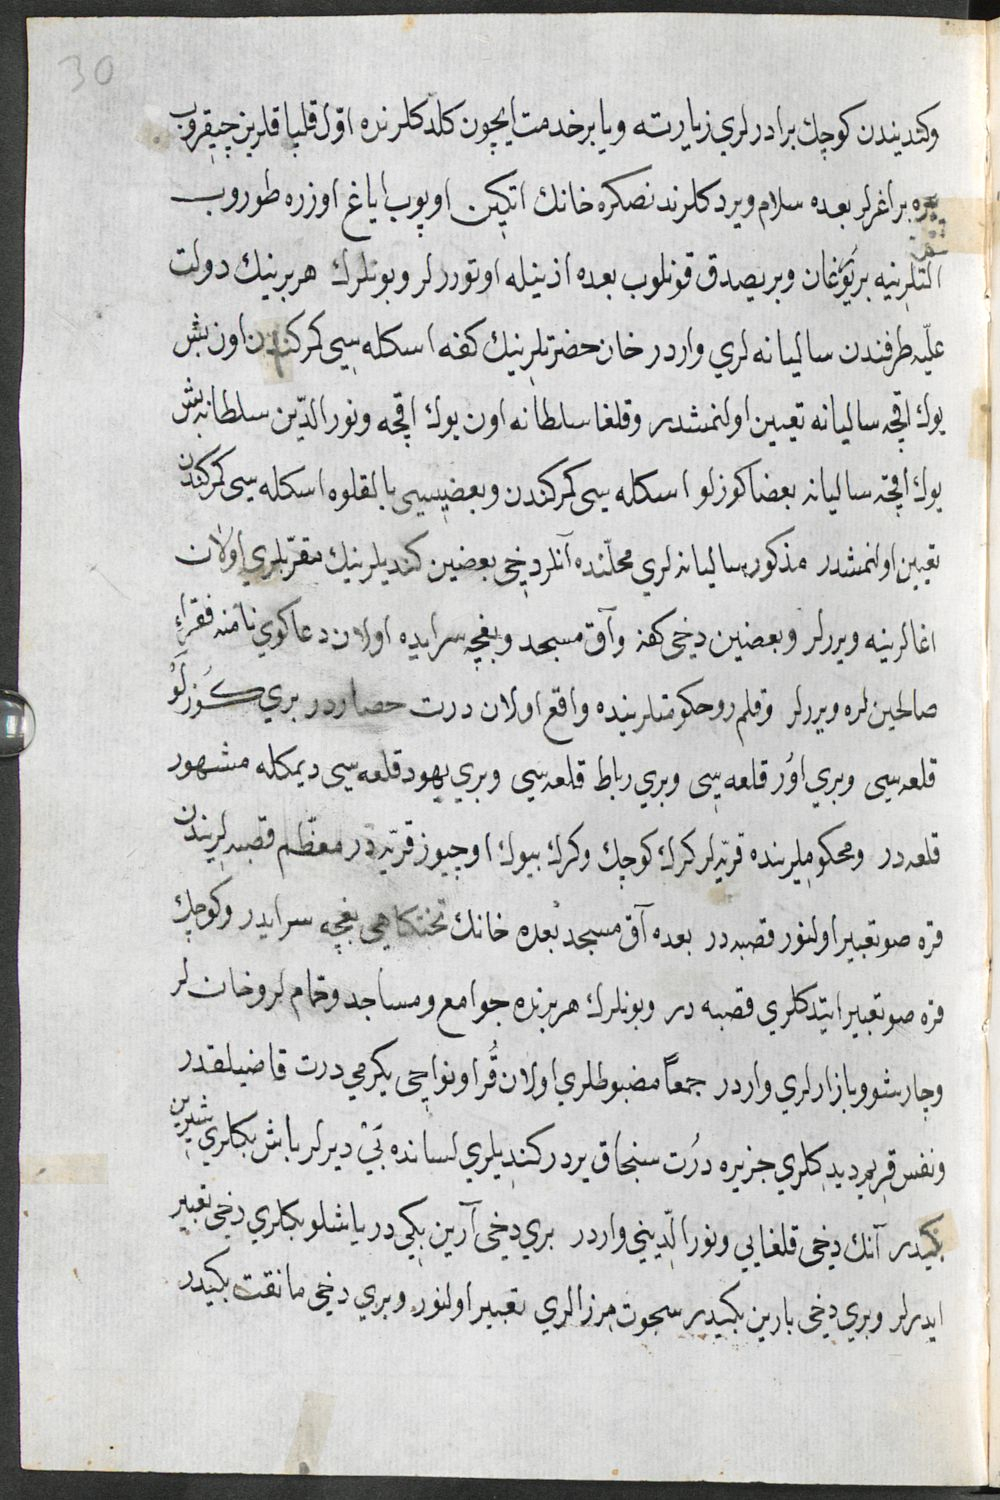 30
وكنديندن كوچك برادرلري زيارته ويا بر خدمت ايچون كلدكلرنده اوّل قلپاقلرين چيقروب
يره براغرلر بعده سلام ويردكلرندنصكره خانك اتكين اوپوب اياغ اوزره طوروب
التلرينه بر يورغان وبر يصدق قونلوب بعده اذنيله اوتوررلر وبونلرك هر برينك دولت
عليّه طرفندن ساليانه لري واردر خان حضرتلرينك كفه اسكله سى كمركندن اون بش
يوك اقچه ساليانه تعيين اولنمشدر وقلغا سلطانه اون يوك اقچه ونور الدّين سلطانه بش
يوك اقچه ساليانه بعضا كوزلو اسكله سى كمركندن وبعضيسى بالقلوه اسكله سى كمركندن
تعيين اولنمشدر مذكور ساليانه لري محلّنده آنلر دخى بعضين كنديلرينك مقرّبلري اولان
اغالرينه ويررلر وبعضين دخى كفه وآق مسجد وبغچه سرايده اولان دعاكوي نامنه فقراء
صالحين لره ويررلر وقلمرو حكومتلرينده واقع اولان درت حصاردر بري كُوزلَوْ
قلعه سى وبري اوُر قلعه سى وبري رباط قلعه سي وبري يهود قلعه سى ديمكله مشهور
قلعه در ومحكوملرينده قريه لر كرك كوچك وكرك بيوك اوچيوز قريه در معظّم قصبه لريندن
قره صو تعبير اولنور قصبه در بعده آق مسجد بعده خانك تختكاهى بغچه سرايدر وكوچك
قره صو تعبير ايتدكلري قصبه در وبونلرك هر برنده جوامع ومساجد وحمام لر وخان لر
وچارشو وبازارلري واردر جمعاً مضبوطلري اولان قُرا ونواحى يكرمي درت قاضيلقدر
ونفس قريم ديدكلري جزيره دُرت سنجاق يردر كنديلري لساننده بَىْ ديرلر باش بكلري شيرين
بكيدر آنك دخى قلغايي ونور الدّيني واردر بري دخى آرين بكى در ياشلو بكلري دخى تعبير
ايدرلر وبري دخى بارين بكيدر سجوت مرزالري تعبير اولنور وبري دخى مانقت بكيدر